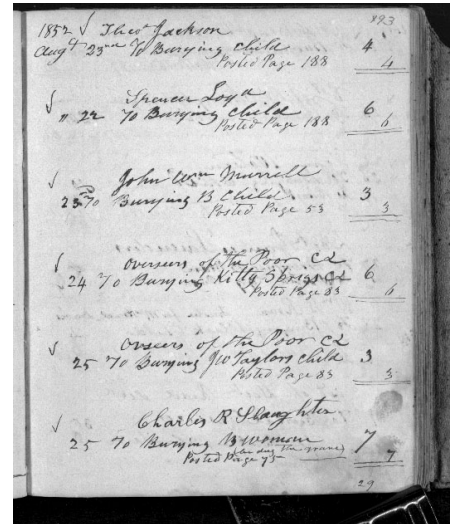 893
1852 √ Theo. Jackson
Augt 23rd To Burying Child 4
Posted Page 188 4
√ Spencer Loyd
" 22 To Burying Child 6
Posted Page 188 6
√ John Wm Murrell
23rd To Burying B Child 3
Posted Page 53 3
√ Overseers of the Poor C2
24 To Burying Kitty Sprigs C2 6
Posted Page 83 6
√ Overseers of the Poor C2
25 To Burying Jno Taylors Child 3
Posted Page 83 3
√ Charles R Slaughter
25 To Burying B Woman 7
Posted Page 75 7
29